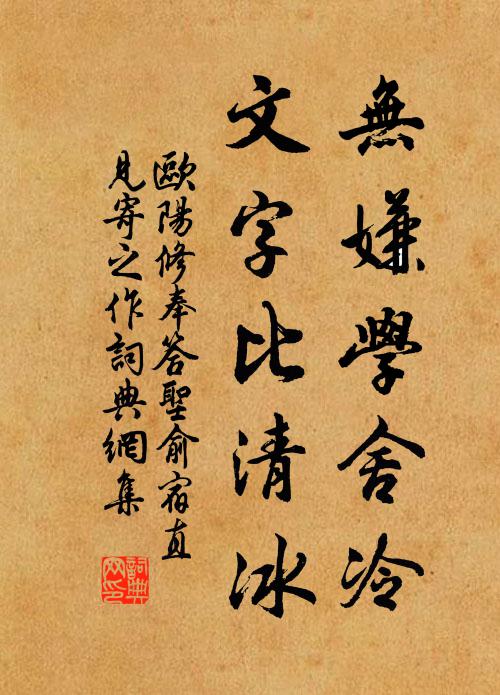 無嫌學舍冷
文字比清冰
歐陽修奉答聖俞宿直
見寄之作詞典網集
詞典
网印